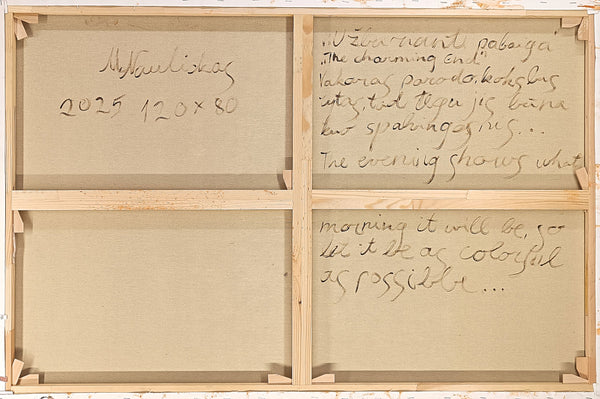 M Nauliskas
2025 120 x 80
„Užburianti pabaiga"
„The charming End"
Vakaras parodo koks bus
rytas, tad tegu jis būna
kuo spalvingesnis...
The evening shows what
morning it will be, so
let it be as colorful
as possible...